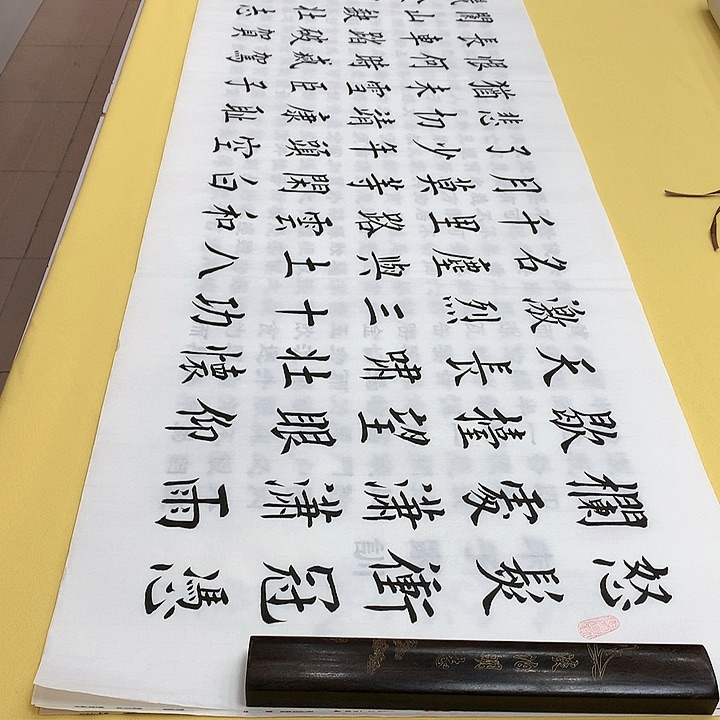 怒髮衝冠憑
欄處瀟瀟雨
歇擡望眼仰
天長嘯壯懷
激烈三十功
名塵與土八
千里路雲和
月莫等閑白
了少年頭空
悲切靖康恥
猶未雪臣子
恨何時滅駕
長車踏破賀
蘭山缺壯志